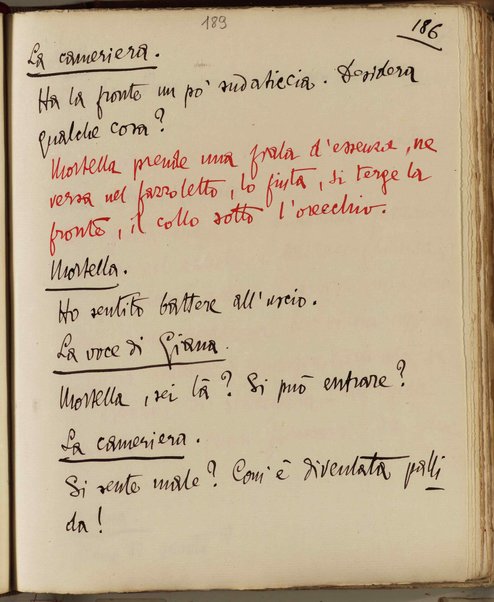 189
186
La cameriera.
Ha la fronte un pò sudaticcia. Desidera
qualche cosa?
Mortella prende una fiala d'essenza, ne
versa nel fazzoletto, lo fiuta, si terge la
fronte, il collo sotto l'orecchio.
Mortella.
Ho sentito battere all'uscio.
La voce di Giana.
Mortella, sei là? Si può entrare?
La cameriera.
Si sente male? Com'è diventata palli
da!